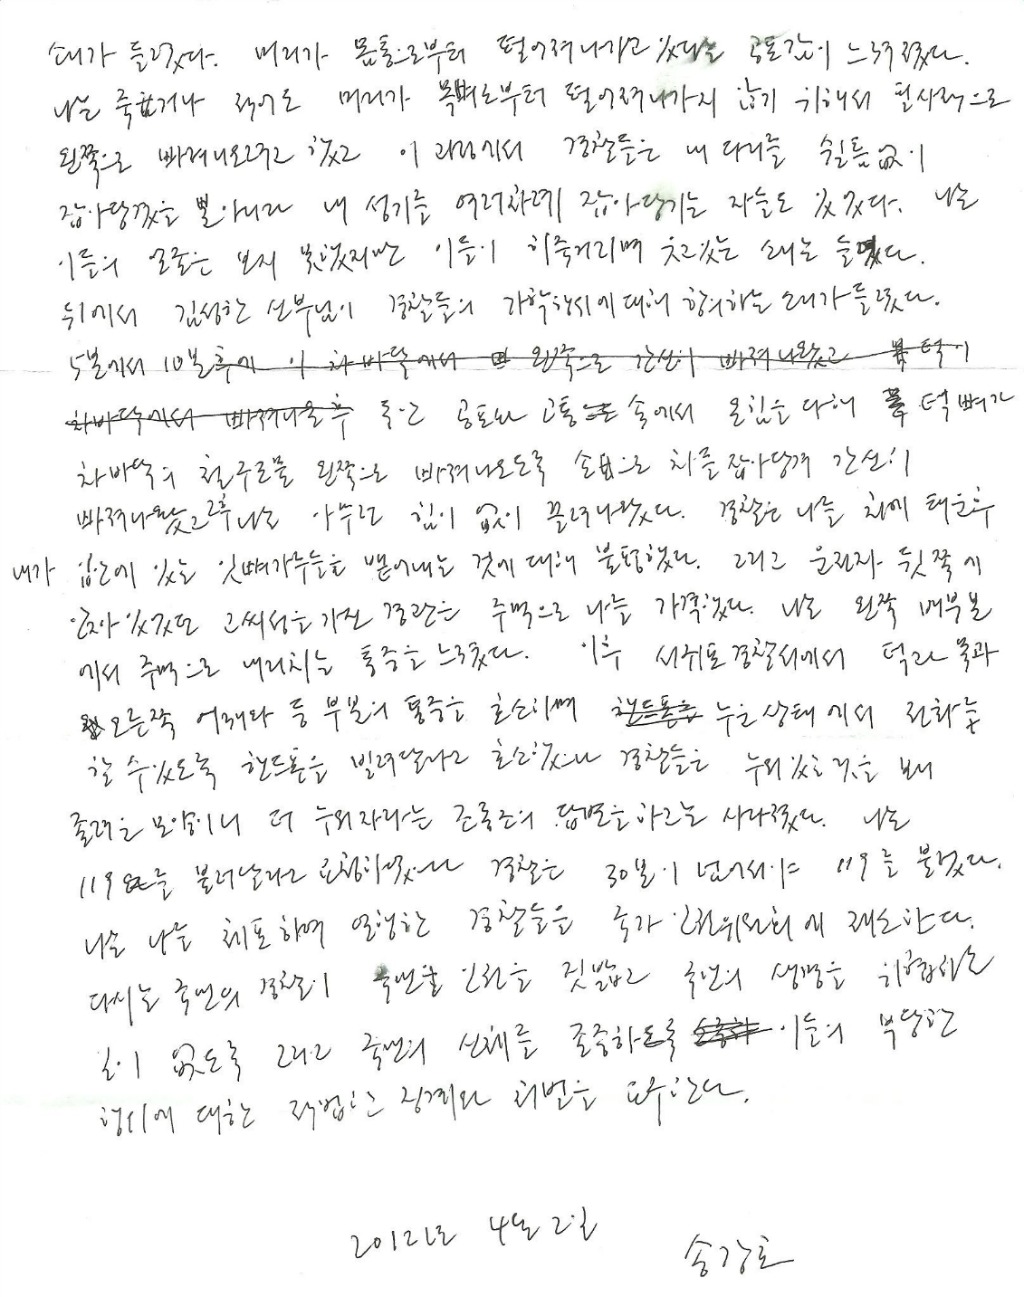 소리가 들렸다. 머리가 몸통으로부터 떨어져나가고 있다는 공포감이 느껴졌다.
나는 죽었거나 적어도 머리가 목뼈로부터 떨어져나가지 않기 위해서 필사적으로
왼쪽으로 빠져나오려고 했고 이 과정에서 경찰들은 내 다리를 쉴틈없이
잡아당겼을 뿐 아니라 내 성기를 여러차례 잡아당기는 자들도 있었다. 나는
이들의 얼굴은 보지 못했지만 이들이 히죽거리며 웃고있는 소리는 들었다.
뒤에서 김성환 신부님이 경찰들의 가학행위에 대해 항의하는 소리가 들렸다.
5분에서 10분 후에 이 차 바닥에서 왼쪽으로 간신히 빠져나왔고 턱이
차바닥에서 빠져나올 후 죽은 공포와 고통 속에서 온힘을 다해 턱뼈가
차바닥의 철구조물 왼쪽으로 빠져나오도록 손으로 차를 잡아당겨 간신히
빠져나왔고 그후 나는 아무런 힘이 없이 끌려나왔다. 경찰은 나를 차에 태운후
내가 입안에 있는 잇뼈가루들을 뱉어내는 것에 대해 불평했다. 그리고 운전자 뒷쪽에
앉아 있었던 고씨성을 가진 경관은 주먹으로 나를 가격했다. 나는 왼쪽 배부분
에서 주먹으로 내려치는 통증을 느꼈다. 이후 서귀포경찰서에서 턱과 목과
오른쪽 어깨와 등 부분의 통증을 호소하며 핸드폰을 누운상태에서 전화를
할 수 있도록 핸드폰을 빌려달라고 호소했으나 경찰들은 누워있는 것을 보니
졸려운 모양이니 더 누워자라는 조롱조의 답변을 하고는 사라졌다. 나는
119를 불러달라고 요청하였으나 경찰은 30분이 넘어서야 119를 불렀다.
나는 나를 체포하여 연행한 경찰들을 국가인권위원회에 제소한다.
다시는 국민의 경찰이 국민을 인권을 짓밟고 국민의 생명을 위협하는
일이 없도록 그리고 국민의 신체를 존중하도록 이들의 부당한
행위에 대한 적법한 징계와 처벌을 요구한다.
2012년 4월 2일
송강호